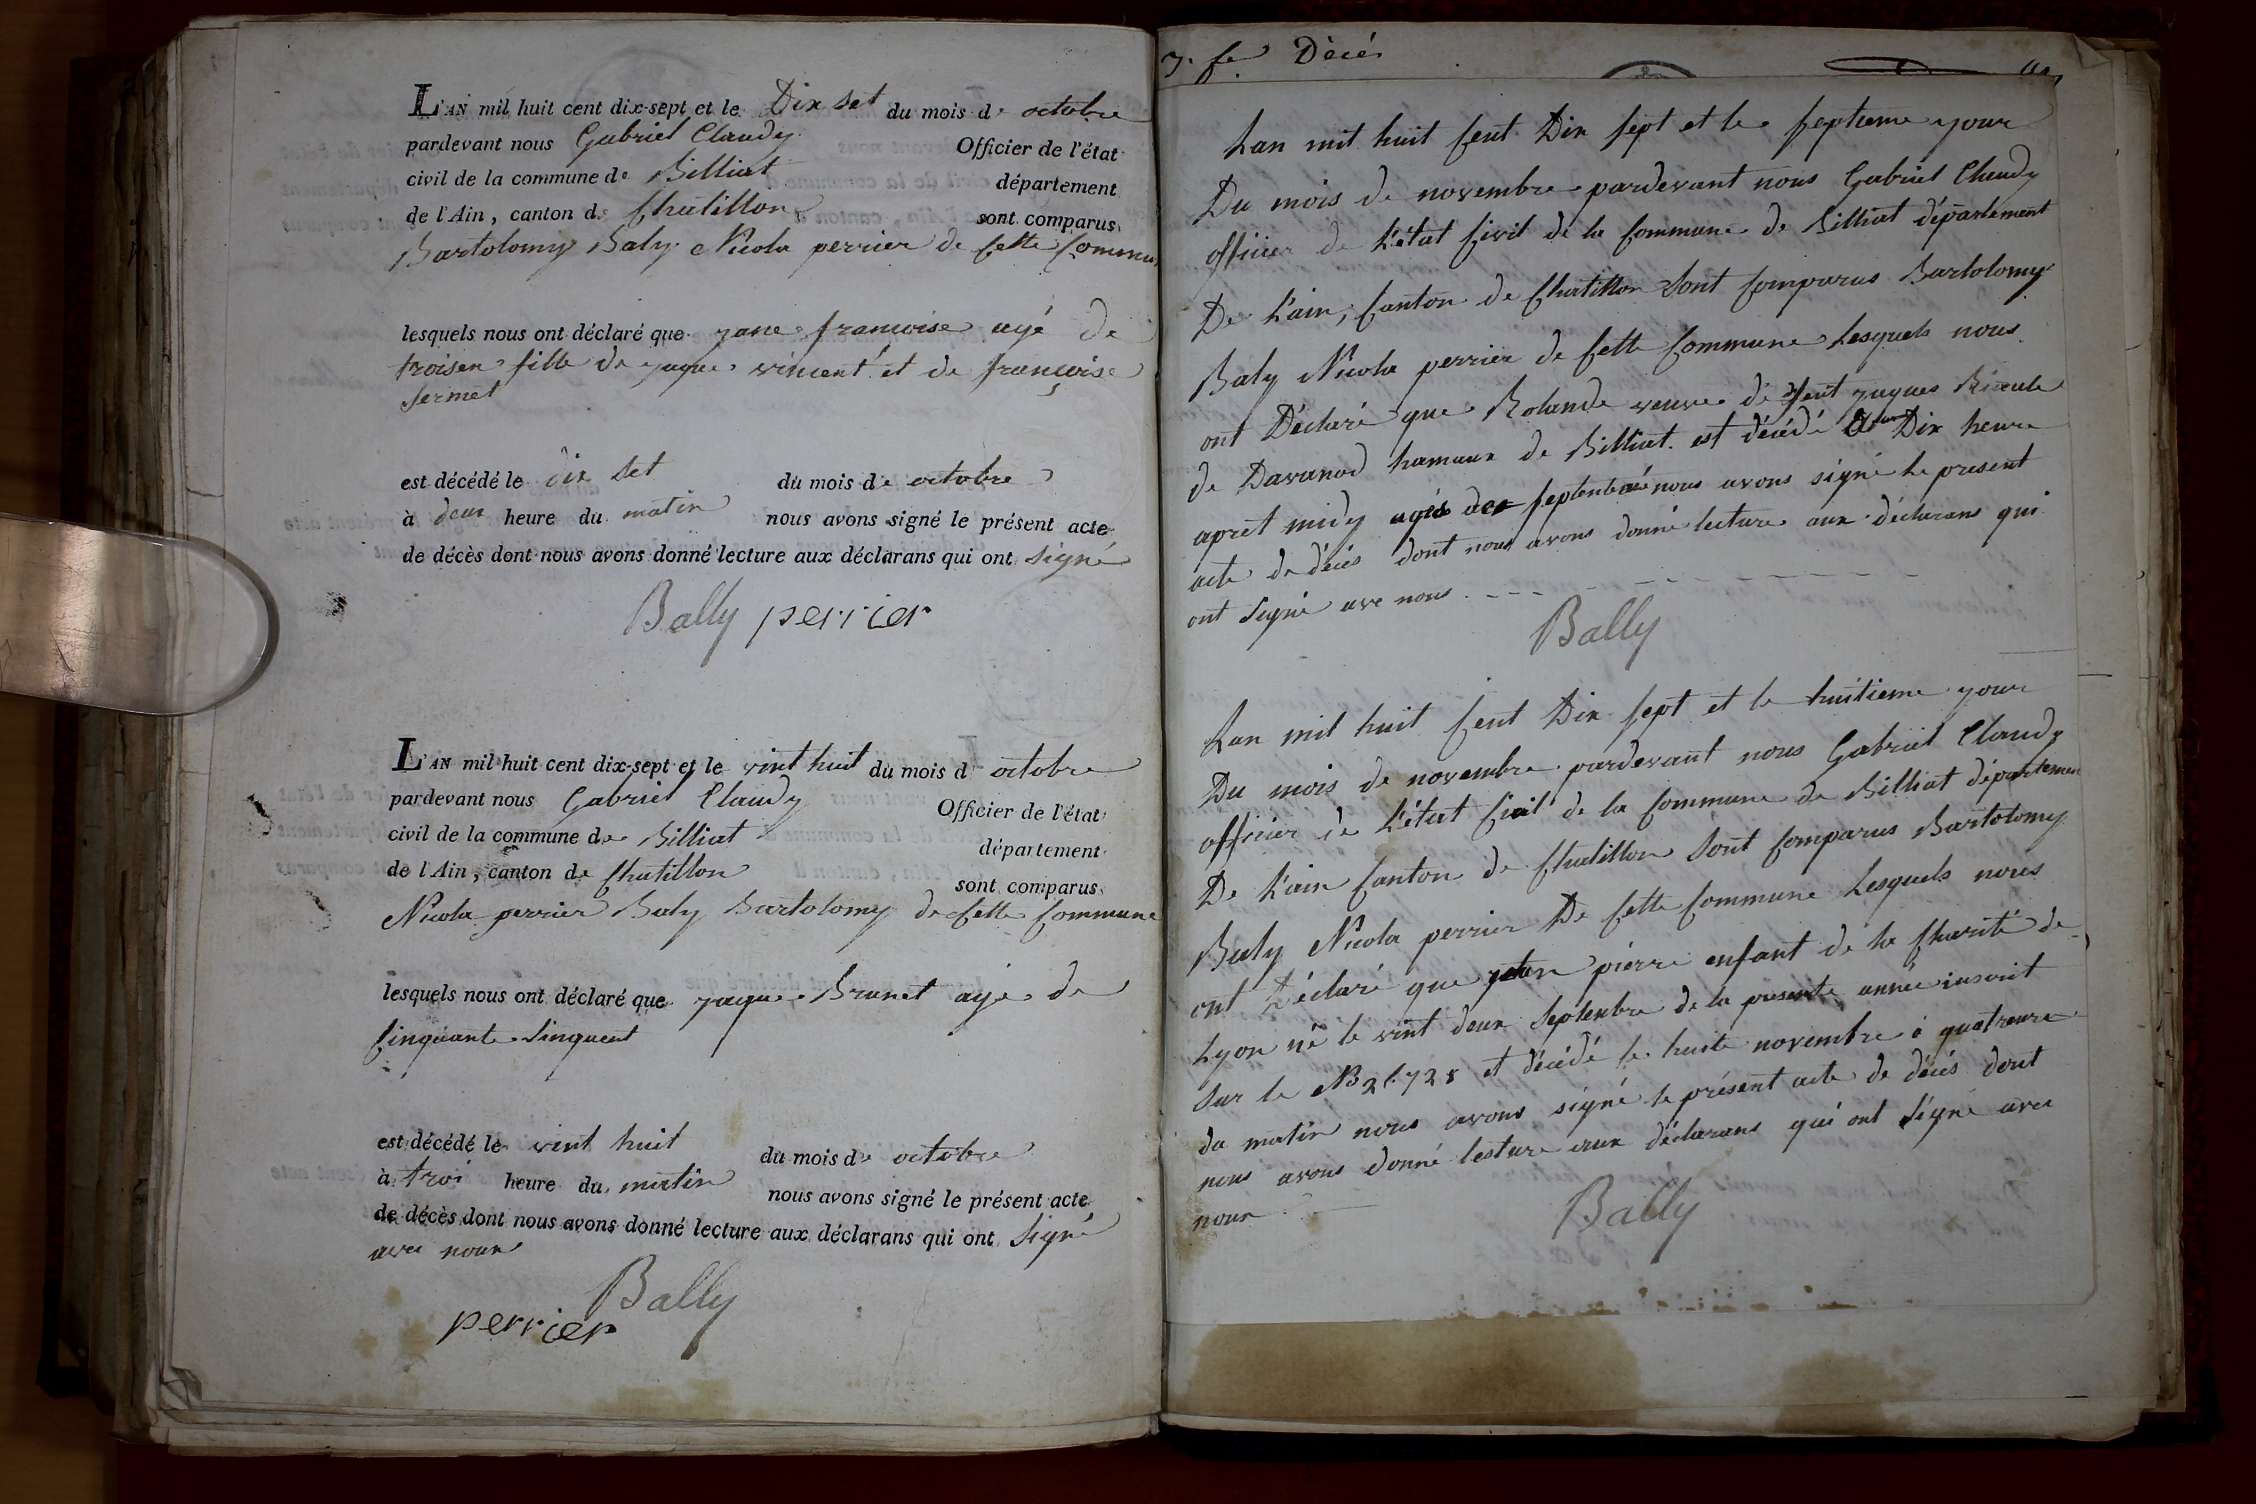 L'AN mil huit cent dix-sept et le Dix Set du mois de octobre
pardevant nous Gabriel Claudy Officier de l'état
civil de la commune de Billiat département
de l'Ain, canton de Chatillon sont comparus
Bartolomy Baly Nicola perrier de Cette Commune
lesquels nous ont déclaré que jane francoise agé de
troisen fille de jaque vincent et de françoise
Sermet
est décédé le dix Set du mois de octobre
à deux heure du matin nous avons signé le présent acte
de décès dont nous avons donné lecture aux déclarans qui ont signé
Bally perrier
L'AN mil huit cent dix-sept et le vint huit du mois d octobre
pardevant nous Gabriel Claudy Officier de l'état
civil de la commune de Billiat département
de l'Ain, canton de Chatillon sont comparus
Nicola perrier Baly Bartolomy de Cette Commune
lesquels nous ont déclaré que jaque Brunet agé de
Cinquante Sinquent
est décédé le vint huit du mois de octobre
à troi heure du matin nous avons signé le présent acte
de décès dont nous avons donné lecture aux déclarans qui ont Signé
avec nous
Bally
perrier
3. fe Décés
Lan mil huit Cent Dix Sept et le Septieme jour
Du mois de novembre pardevant nous Gabriel Claudy
officier de L'état Civil de la Commune de Billiat département
De L'ain, Canton de Chatillon Sont Comparus Bartolomy
Baly Nicola perrier de Cette Commune Lesquels nous
ont Déclaré que Rolande veuve de jaques
de Davanod hamaux de Billiat est décédé Dix heure
apret midy nous avons signé Le present
acte de décés dont nous avons donné lecture aux déclarans qui
ont Signé ave nous
Bally
Lan mil huit Cent Dix Sept et le huitieme jour
Du mois de novembre pardevant nous Gabriel Claudy
officier de L'état Civil de la Commune de Billiat département
De L'ain Canton de Chatillon Sont Comparus Bartolomy
Baly Nicola perrier De Cette Commune Lesquels nous
ont Déclaré que pierre enfant de la Charité de
Lyon né le vint deux Septenbre de la presente année inscrit
Sur le et décédé le huite novembre à quatreure
du matin nous avons signé le présent acte de décés dont
nous avons donné lecture aux déclarans qui ont Signé avec
nous
Bally